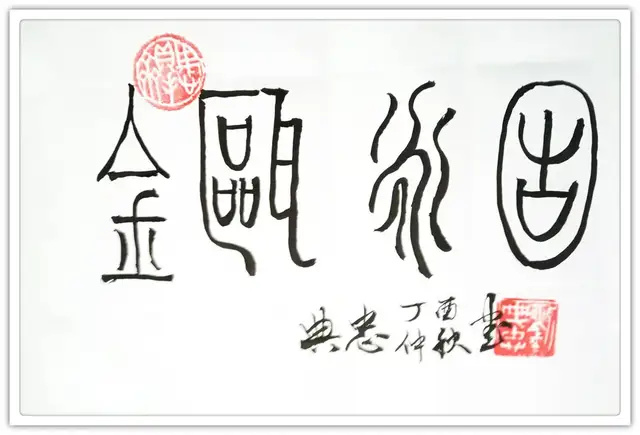 金甌永固
典忠丁酉仲秋書